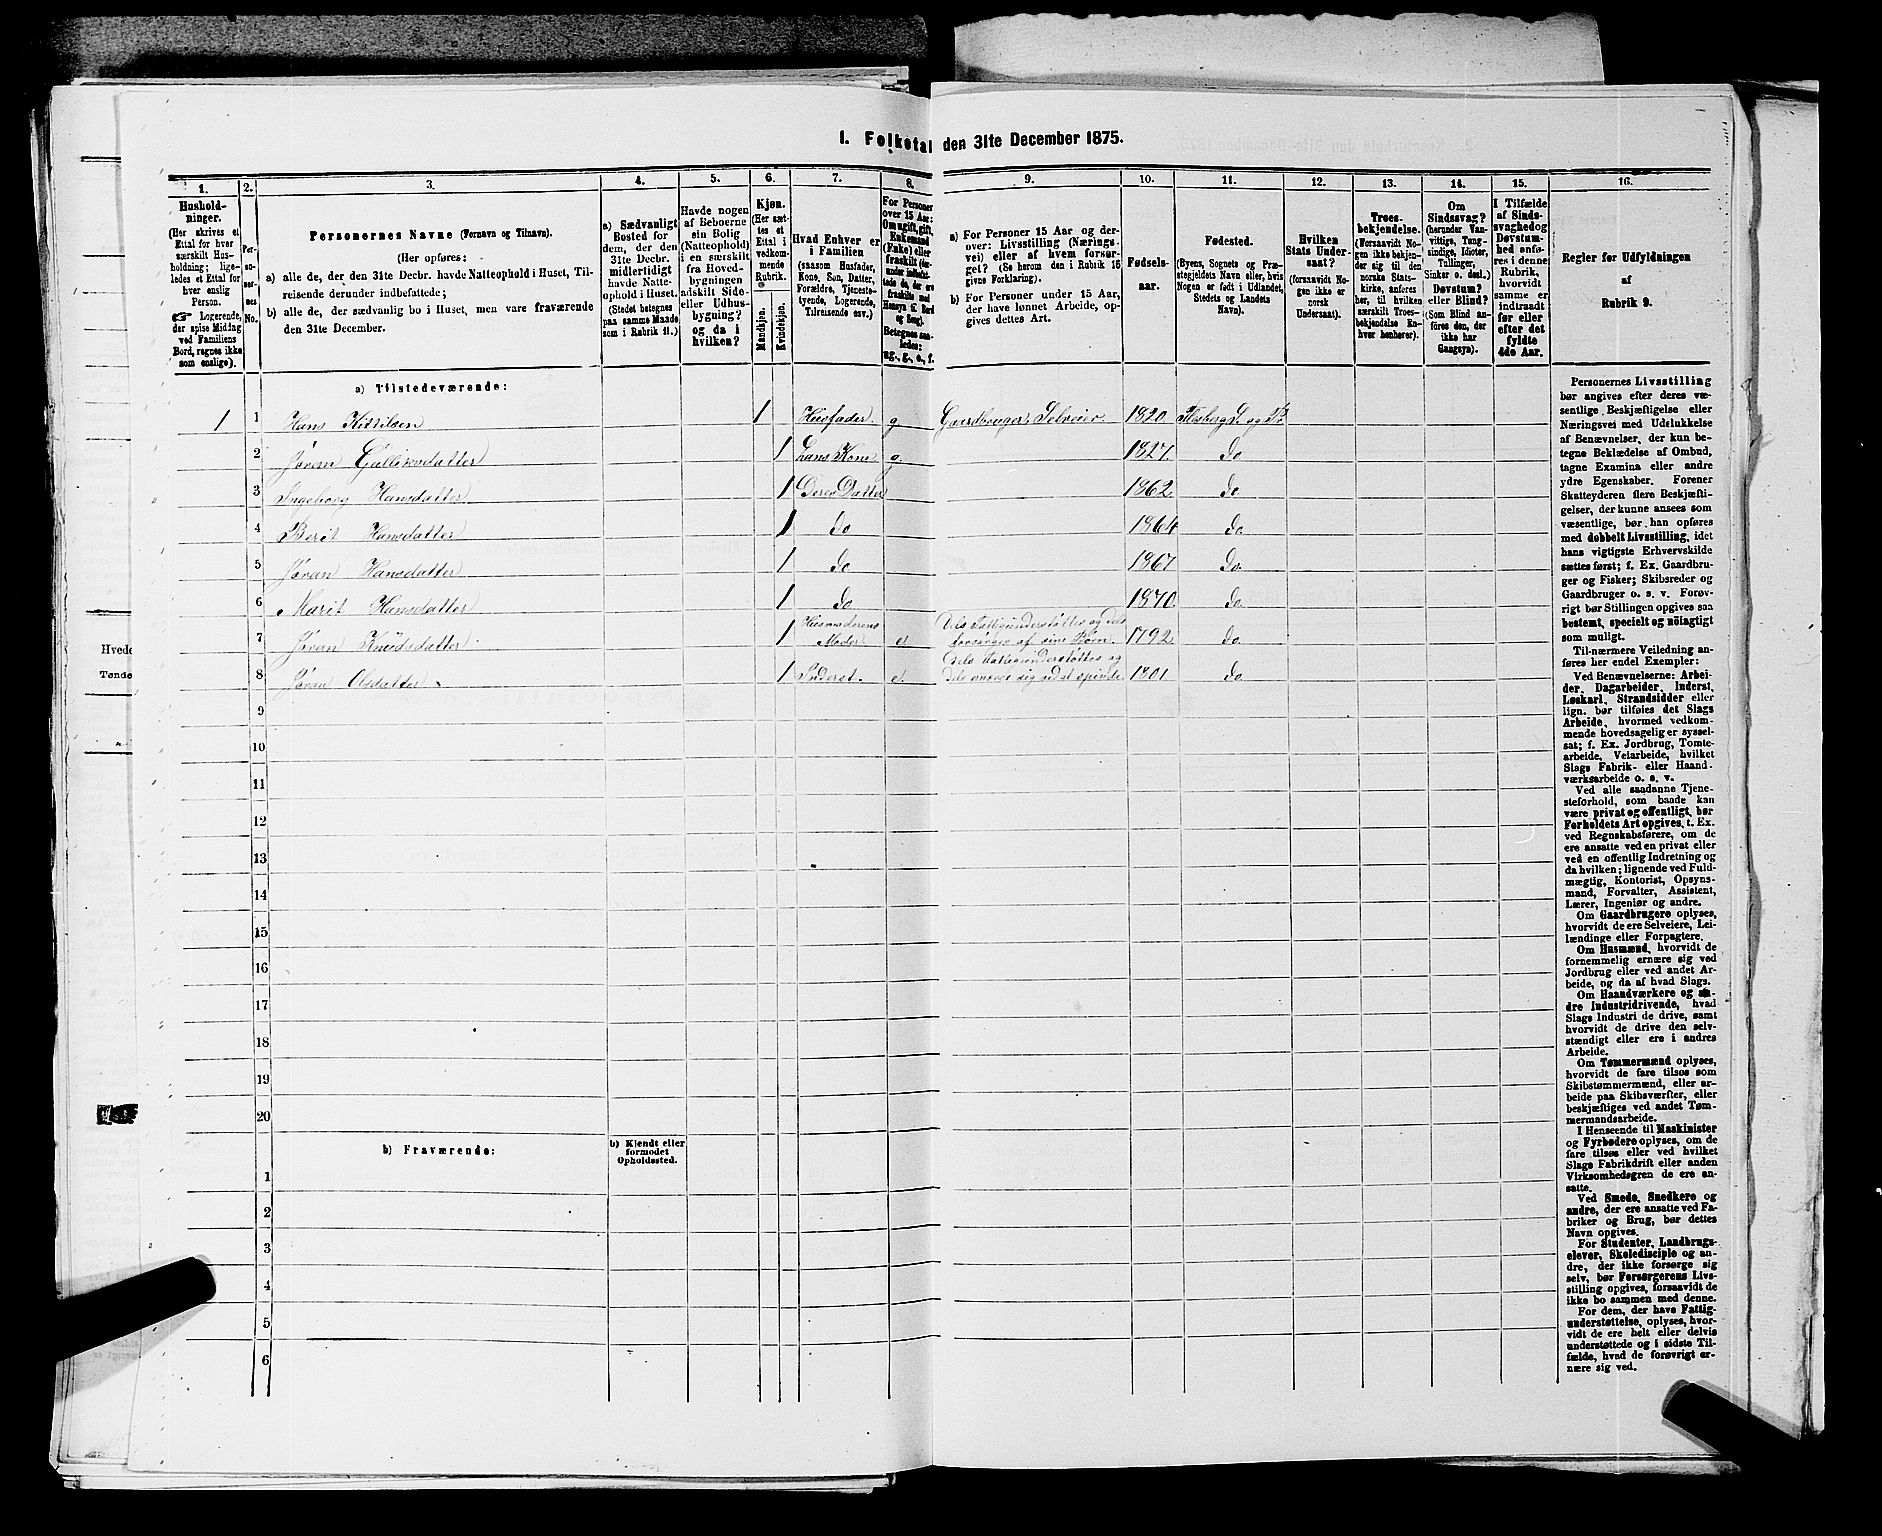 I. Folketal den 31te December 1875.
1.
Hushold-
ninger.
(Her skrives et
Ettal for hver
særskilt Hus-
holdning; lige-
ledes et Ettal for
hver enslig
Person.
☞ Logerende,
der spise Middag
ved Familiens
Bord, regnes ikke
som enslige).
2.
Per-
so-
ner-
nes
No.
3.
Personernes Navne (Fornavn og Tilnavn).
(Her opføres:
a) alle de, der den 31te Decbr. havde Natteophold i Huset, Til-
reisende derunder indbefattede;
b) alle de, der sædvanlig bo i Huset, men vare fraværende
den 31te December.
4.
a) Sædvanligt
Bosted for
dem, der den
31te Decbr.
midlertidigt
havde Natte-
ophold i Huset.
(Stedet betegnes
paa samme Maade
som i Rubrik 11.)
5.
Havde nogen
af Beboerne
sin Bolig
(Natteophold)
i en særskilt
fra Hoved-
bygningen
adskilt Side-
eller Udhus-
bygning?
og da i
hvilken?
6.
Kjøn.
(Her sæt-
tes et
Ettal i
vedkom-
mende
Rubrik.
Mandkjøn.
Kvindekjøn.
7.
Hvad Enhver er
i Familien
(saasom Husfader,
Kone, Søn, Datter,
Forældre, Tjeneste-
tyende, Logerende,
Tilreisende osv.)
8.
For Personer
over 15 Aar:
Om ugift, gift,
Enkemand
(Enke) eller
fraskilt
Betegnes saa-
ledes:
ug., g., e., f.
9.
a) For Personer 15 Aar og der-
over: Livsstilling (Nærings-
vei) eller af hvem forsør-
get? (Se herom den i Rubrik 16
givne Forklaring).
b) For Personer under 15 Aar,
der have lønnet Arbeide, op-
gives dettes Art.
10.
Fødsels-
aar.
11.
Fødested.
(Byens, Sognets og Præ-
stegjeldets Navn eller, hvis
Nogen er født i Udlandet,
Stedets og Landets
Navn).
12.
Hvilken
Stats Under-
saat?
(forsaavidt No-
gen ikke er
norsk
Undersaat).
13.
Troes-
bekjendelse.
(Forsaavidt No-
gen ikke bekjen-
der sig til den
norske Stats-
kirke, anføres
her, til hvilken
særskilt Troes-
bekjendelse En-
hver henhører).
14.
Om
Sindssvag?
(herunder Van-
vittige, Tung-
sindige, Idioter,
Tullinger,
Sinker o. desl.)
Døvstum?
eller Blind?
(Som Blind an-
føres den, der
ikke har
Gangsyn).
15.
I Tilfælde
af Sinds-
svaghed og
Døvstum-
hed anfø-
res i denne
Rubrik,
hvorvidt
samme er
indtraadt
før eller
efter det
fyldte
4de Aar.
16.
Regler for Udfyldningen
af
Rubrik 9.
a) Tilstedeværende:
1 1 Hans Kittilsen 1 Husfader. g Gaardbruger, Selveier. 1820. Flesberg S. og Pr
2 Jøran Gulliksdatter 1 hans Kone g 1827. do
3 Ingeborg Hansdatter 1 Deres Datter 1862. do
4 Berit Hansdatter 1 do 1864 do.
5 Jøran Hansdatter 1 do 1867 do.
6 Marit Hansdatter 1 do 1870. do.
7 Jøran Knudsdatter. 1 Husmoderens Moder e Dels Fattigunderstøttes og dels
forsørges af sine Børn. 1792. do.
8 Jøran Olsdatter. 1 Inderst. e Dels Fattigunderstøttes og
Dels ernærer sig ved at spinde. 1801. do.
9
10
11
12
13
14
15
16
17
18
19
20
b) Fraværende:
b) Kjendt eller
formodet
Opholdssted.
1
2
3
4
5
6
Personernes Livsstilling
bør angives efter deres væ-
sentlige Beskjæftigelse eller
Næringsvei med Udelukkelse
af Benævnelser, der kun be-
tegne Beklædelse af Ombud,
tagne Examina eller andre
ydre Egenskaber. Forener
Skatteyderen flere Beskjæfti-
gelser, der kunne ansees som
væsentlige, bør han opføres
med dobbelt Livsstilling, idet
hans vigtigste Erhvervskilde
sættes først; f. Ex. Gaardbru-
ger og Fisker; Skibsreder og
Gaardbruger o. s. v. Forøv-
rigt bør Stillingen opgives saa
bestemt, specielt og nøiagtigt
som muligt.
Til nærmere Veiledning an-
føres her endel Exempler:
Ved Benævnelserne: Arbei-
der, Dagarbeider, Inderst,
Løskarl, Strandsidder eller
lign. bør tilføies det Slags
Arbeide, hvormed vedkom-
mende hovedsagelig er syssel-
sat; f. Ex. Jordbrug, Tomte-
arbeide, Veiarbeide, hvilket
Slags Fabrik- eller Haand-
værksarbeide o. s. v.
Ved alle saadanne Tjene-
steforhold, som baade kan
være privat og offentligt, bør
Forholdets Art opgives, t. Ex.
ved Regnskabsførere, om de
ere ansatte ved en privat eller
ved en offentlig Indretning og
da hvilken; lignende ved Fuld-
mægtig, Kontorist, Opsyns-
mand, Forvalter, Assistent,
Lærer, Ingeniør og andre.
Om Gaardbrugere oplyses,
hvorvidt de ere Selveiere, Lei-
lændinge eller Forpagtere.
Om Husmænd, hvorvidt de
fornemmelig ernære sig ved
Jordbrug eller ved andet Ar-
beide, og da af hvad Slags.
Om Haandværkere og an-
dre Industridrivende, hvad
Slags Industri de drive, samt
hvorvidt de drive den selv-
stændigt eller ere i andres
Arbeide.
Om Tømmermænd oplyses,
hvorvidt de fare tilsøs som
Skibstømmermænd, eller ar-
beide paa Skibsværfter, eller
beskjæftiges ved andet Tøm-
mermandsarbeide.
I Henseende til Maskinister
og Fyrbødere oplyses, om de
fare tilsøs eller ved hvilket
Slags Fabrikdrift eller anden
Virksomhedsgren de ere an-
satte.
Ved Smede, Snedkere og
andre, der ere ansatte ved Fa-
briker og Brug, bør dettes
Navn opgives.
For Studenter, Landbrugs-
elever, Skoledisciple og an-
dre, der ikke forsørge sig
selv, bør Forsørgerens Livs-
stilling opgives, forsaavidt de
ikke bo sammen med denne.
For dem, der have Fattig-
understøttelse, oplyses, hvor-
vidt de ere helt eller delvis
understøttede og i sidste Til-
fælde, hvad de forøvrigt er-
nære sig ved.
Hvede
Tønde